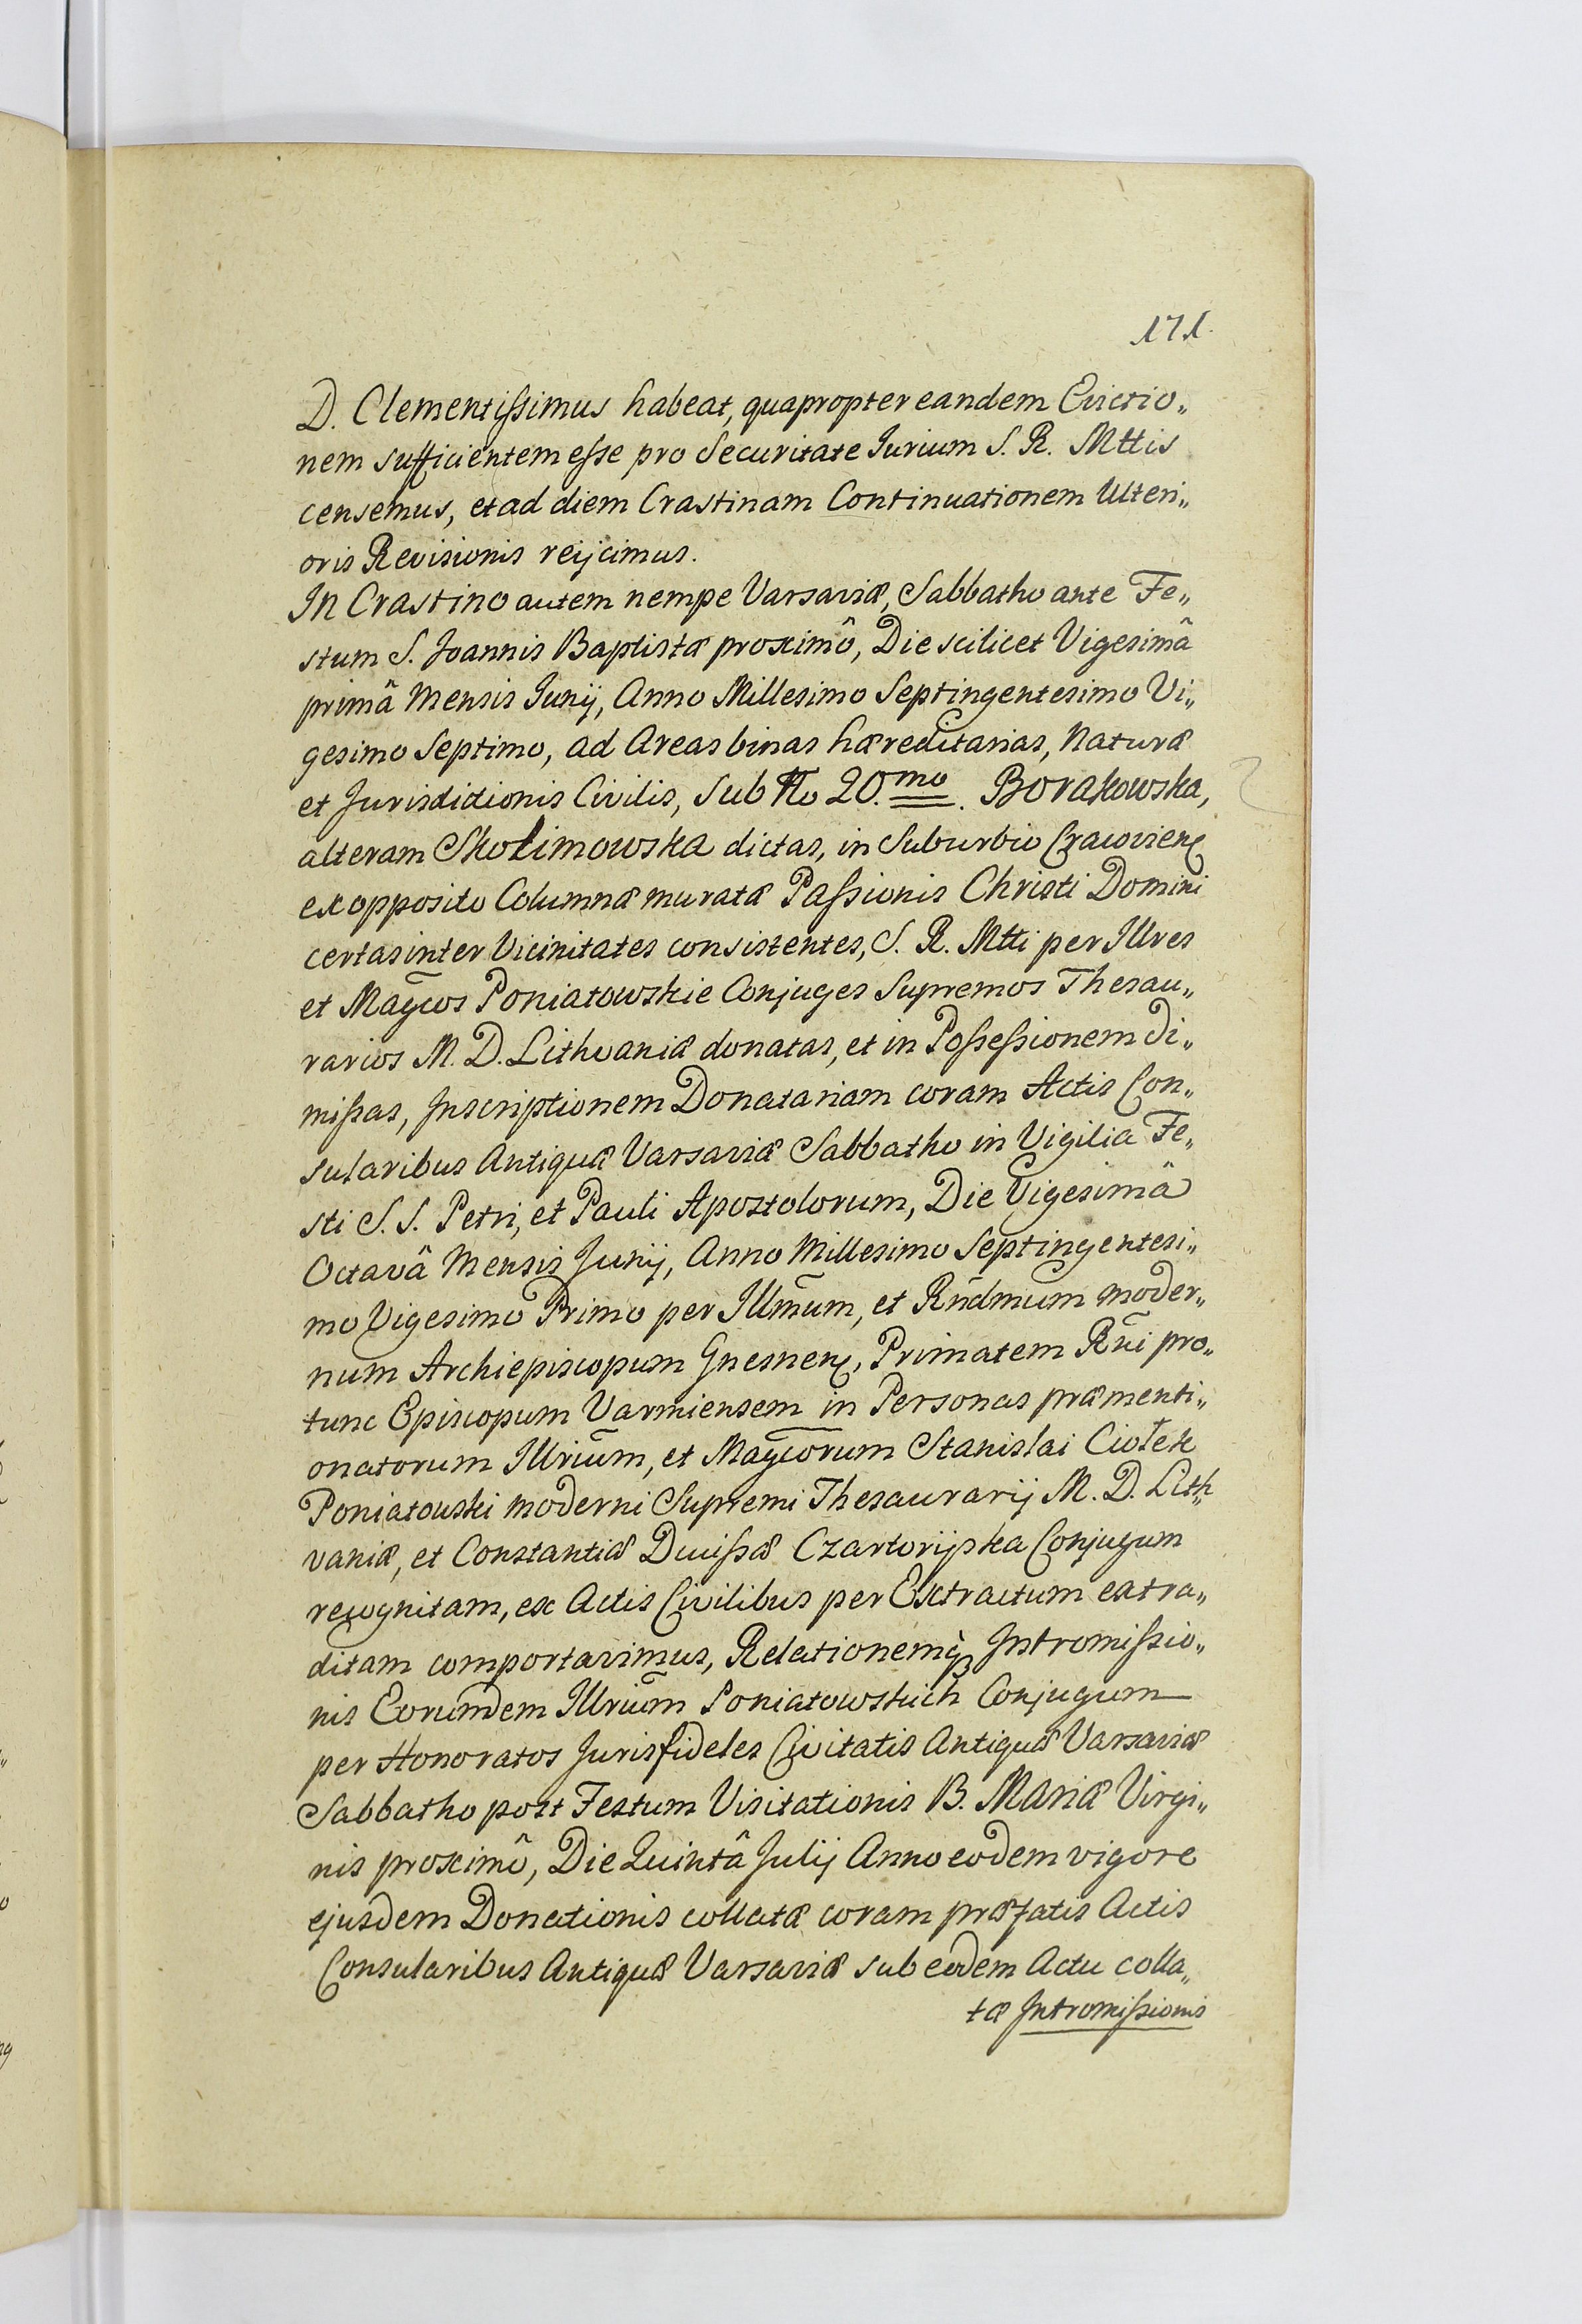 171.
D. Clementissimus habeat, quapropter eandem Evictio„
nem sufficientem esse pro Securitate Jurium S. R. Mttis
censemus, et ad diem Crastinam Continuationem Ulteri„
oris Revisionis reijcimus.
In Crastino autem nempe Varsaviæ, Sabbatho ante Fe„
stum S. Joannis Baptistæ proximô, Die scilicet Vigesimâ
primâ Mensis Junij, Anno Millesimo Septingentesimo Vi„
gesimo Septimo, ad Areas binas hæreditarias, Naturæ
et Jurisdictionis Civilis, Sub No 20.mo. Borakowska,
alteram Skolimowska dictas, in Suburbio Cracovien
ex opposito Columnæ muratæ Passionis Christi Domini
certas inter Vicinitates consistentes, S. R. Mtti per Illres
et Magcos Poniatowskie Conjuges Supremos Thesau„
rarios M. D. Lithvaniæ donatas, et in Possessionem di„
missas, Inscriptionem Donatariam coram Actis Con„
sularibus Antiquæ Varsaviæ Sabbatho in Vigilia Fe„
sti S. S. Petri, et Pauli Apostolorum, Die Vigesimâ
Octavâ Mensis Junij, Anno Millesimo Septingentesi„
mo Vigesimo Primo per Illmum, et Rndmum moder„
num Archiepiscopum Gnesnen, Primatem Rni pro„
tunc Episcopum Varmiensem in Personas præmenti„
onatorum Illrium, et Magcorum Stanislai Ciołek
Poniatowski moderni Supremi Thesaurarij M. D. Lith„
vaniæ, et Constantiæ Ducissæ Czartoryska Conjugum
recognitam, ex Actis Civilibus per Extractum extra„
ditam comportavimus, Relationemq̀3 Intromissio„
nis Eorumdem Illrium Poniatowskich Conjugum
per Honoratos Jurisfideles Civitatis Antiquæ Varsaviæ
Sabbatho post Festum Visitationis B. Mariæ Virgi„
nis proximô, Die Quintâ Julij Anno eodem vigore
ejusdem Donationis collatæ coram præfatis Actis
Consularibus Antiquæ Varsaviæ sub eodem Actu colla„
tæ Intromissionis